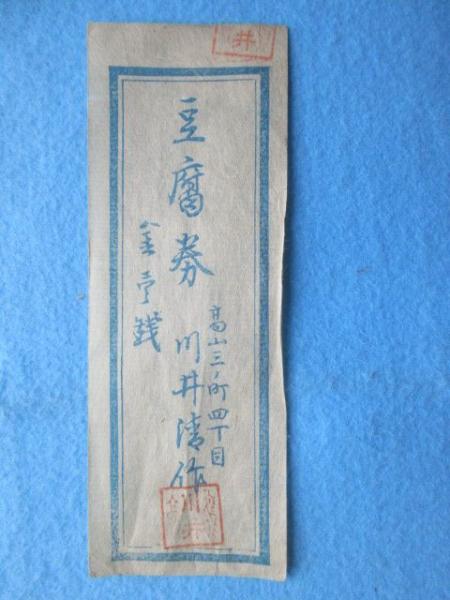 井
豆腐券
金壱銭
高山三ノ町四丁目
川井清作